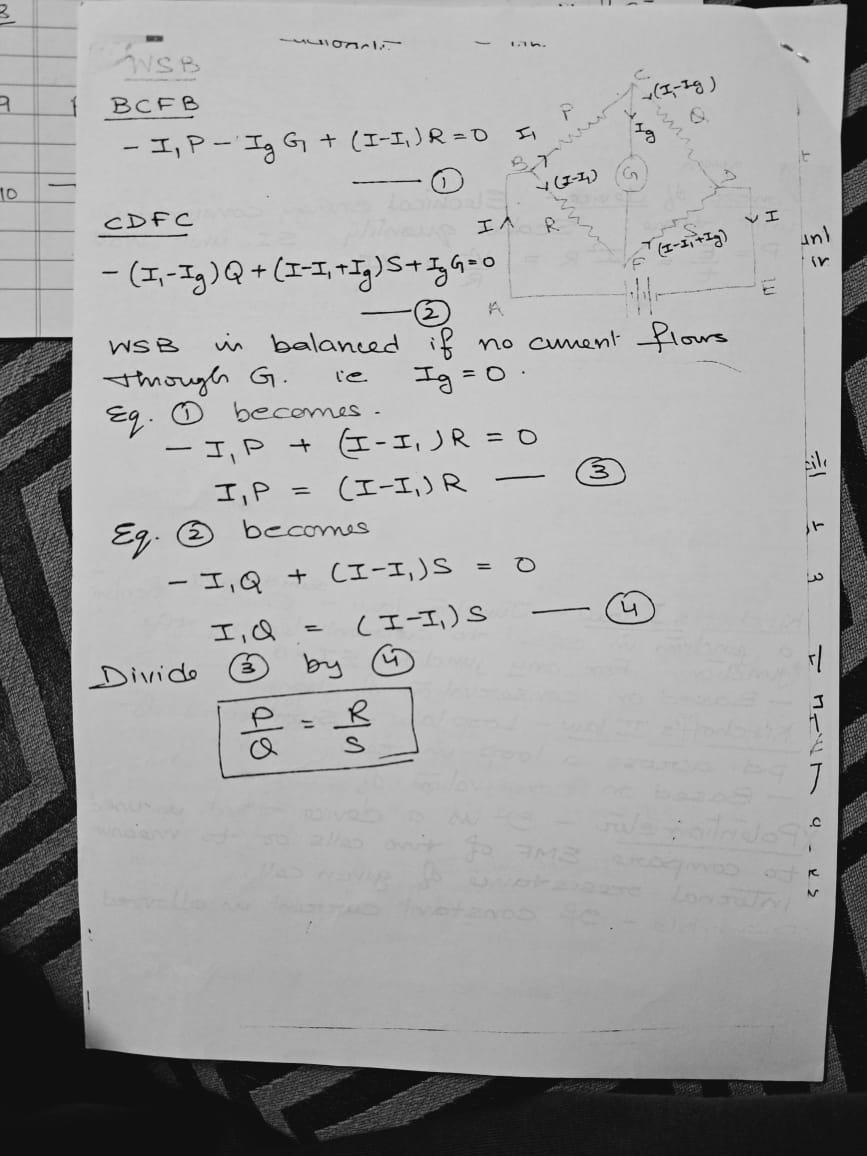 WSB
BCFB
- I₁P - I_g G + (I-I₁)R = 0
—— ①
CDFC
- (I₁-I_g)Q + (I-I₁+I_g)S + I_g G = 0
—— ②
C
(I₁-I_g)
P
Q
I₁
I_g
B
G
D
(I-I₁)
I
R
S
I
(I-I₁+I_g)
F
A
E
WSB is balanced if no current flows
through G. ie I_g = 0.
Eq. ① becomes.
- I₁P + (I-I₁)R = 0
I₁P = (I-I₁)R —— ③
Eq. ② becomes
- I₁Q + (I-I₁)S = 0
I₁Q = (I-I₁)S —— ④
Divide ③ by ④
P/Q = R/S
9
10